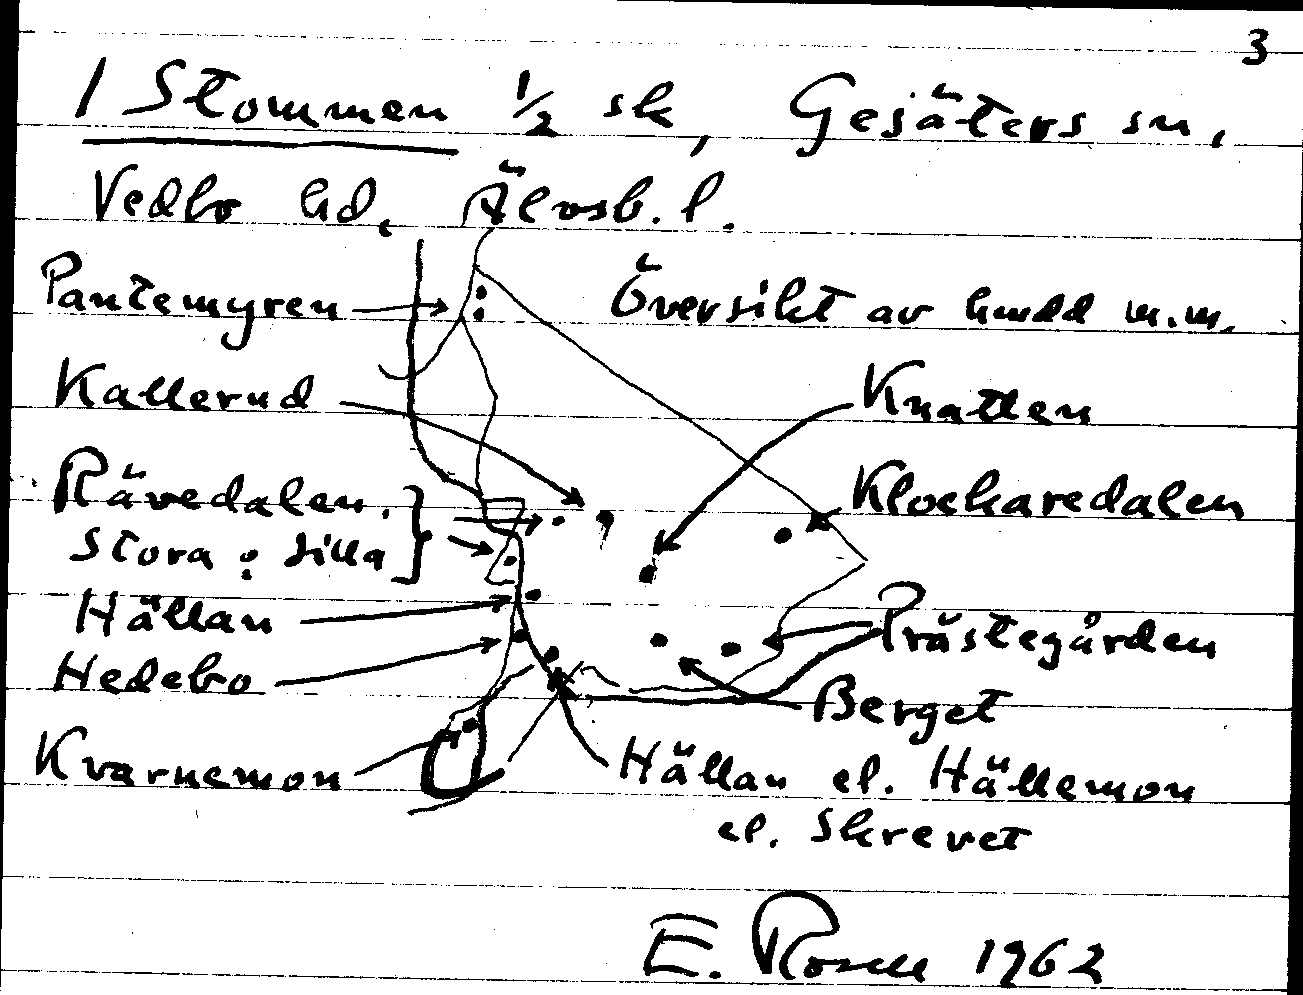 3
1 Stommen 1/2 sk, Gesäters sn,
Vedbo hd, Älvsb. l.
Pantemyren
Översikt av hmdd m.m.
Kallerud
Knatten
Rävedalen,
Klockaredalen
Stora o. Lilla
Hällan
Prästegården
Hedebo
Berget
Kvarnemon
Hällan el. Hällemon
el. Skrevet
E. Rosell 1962